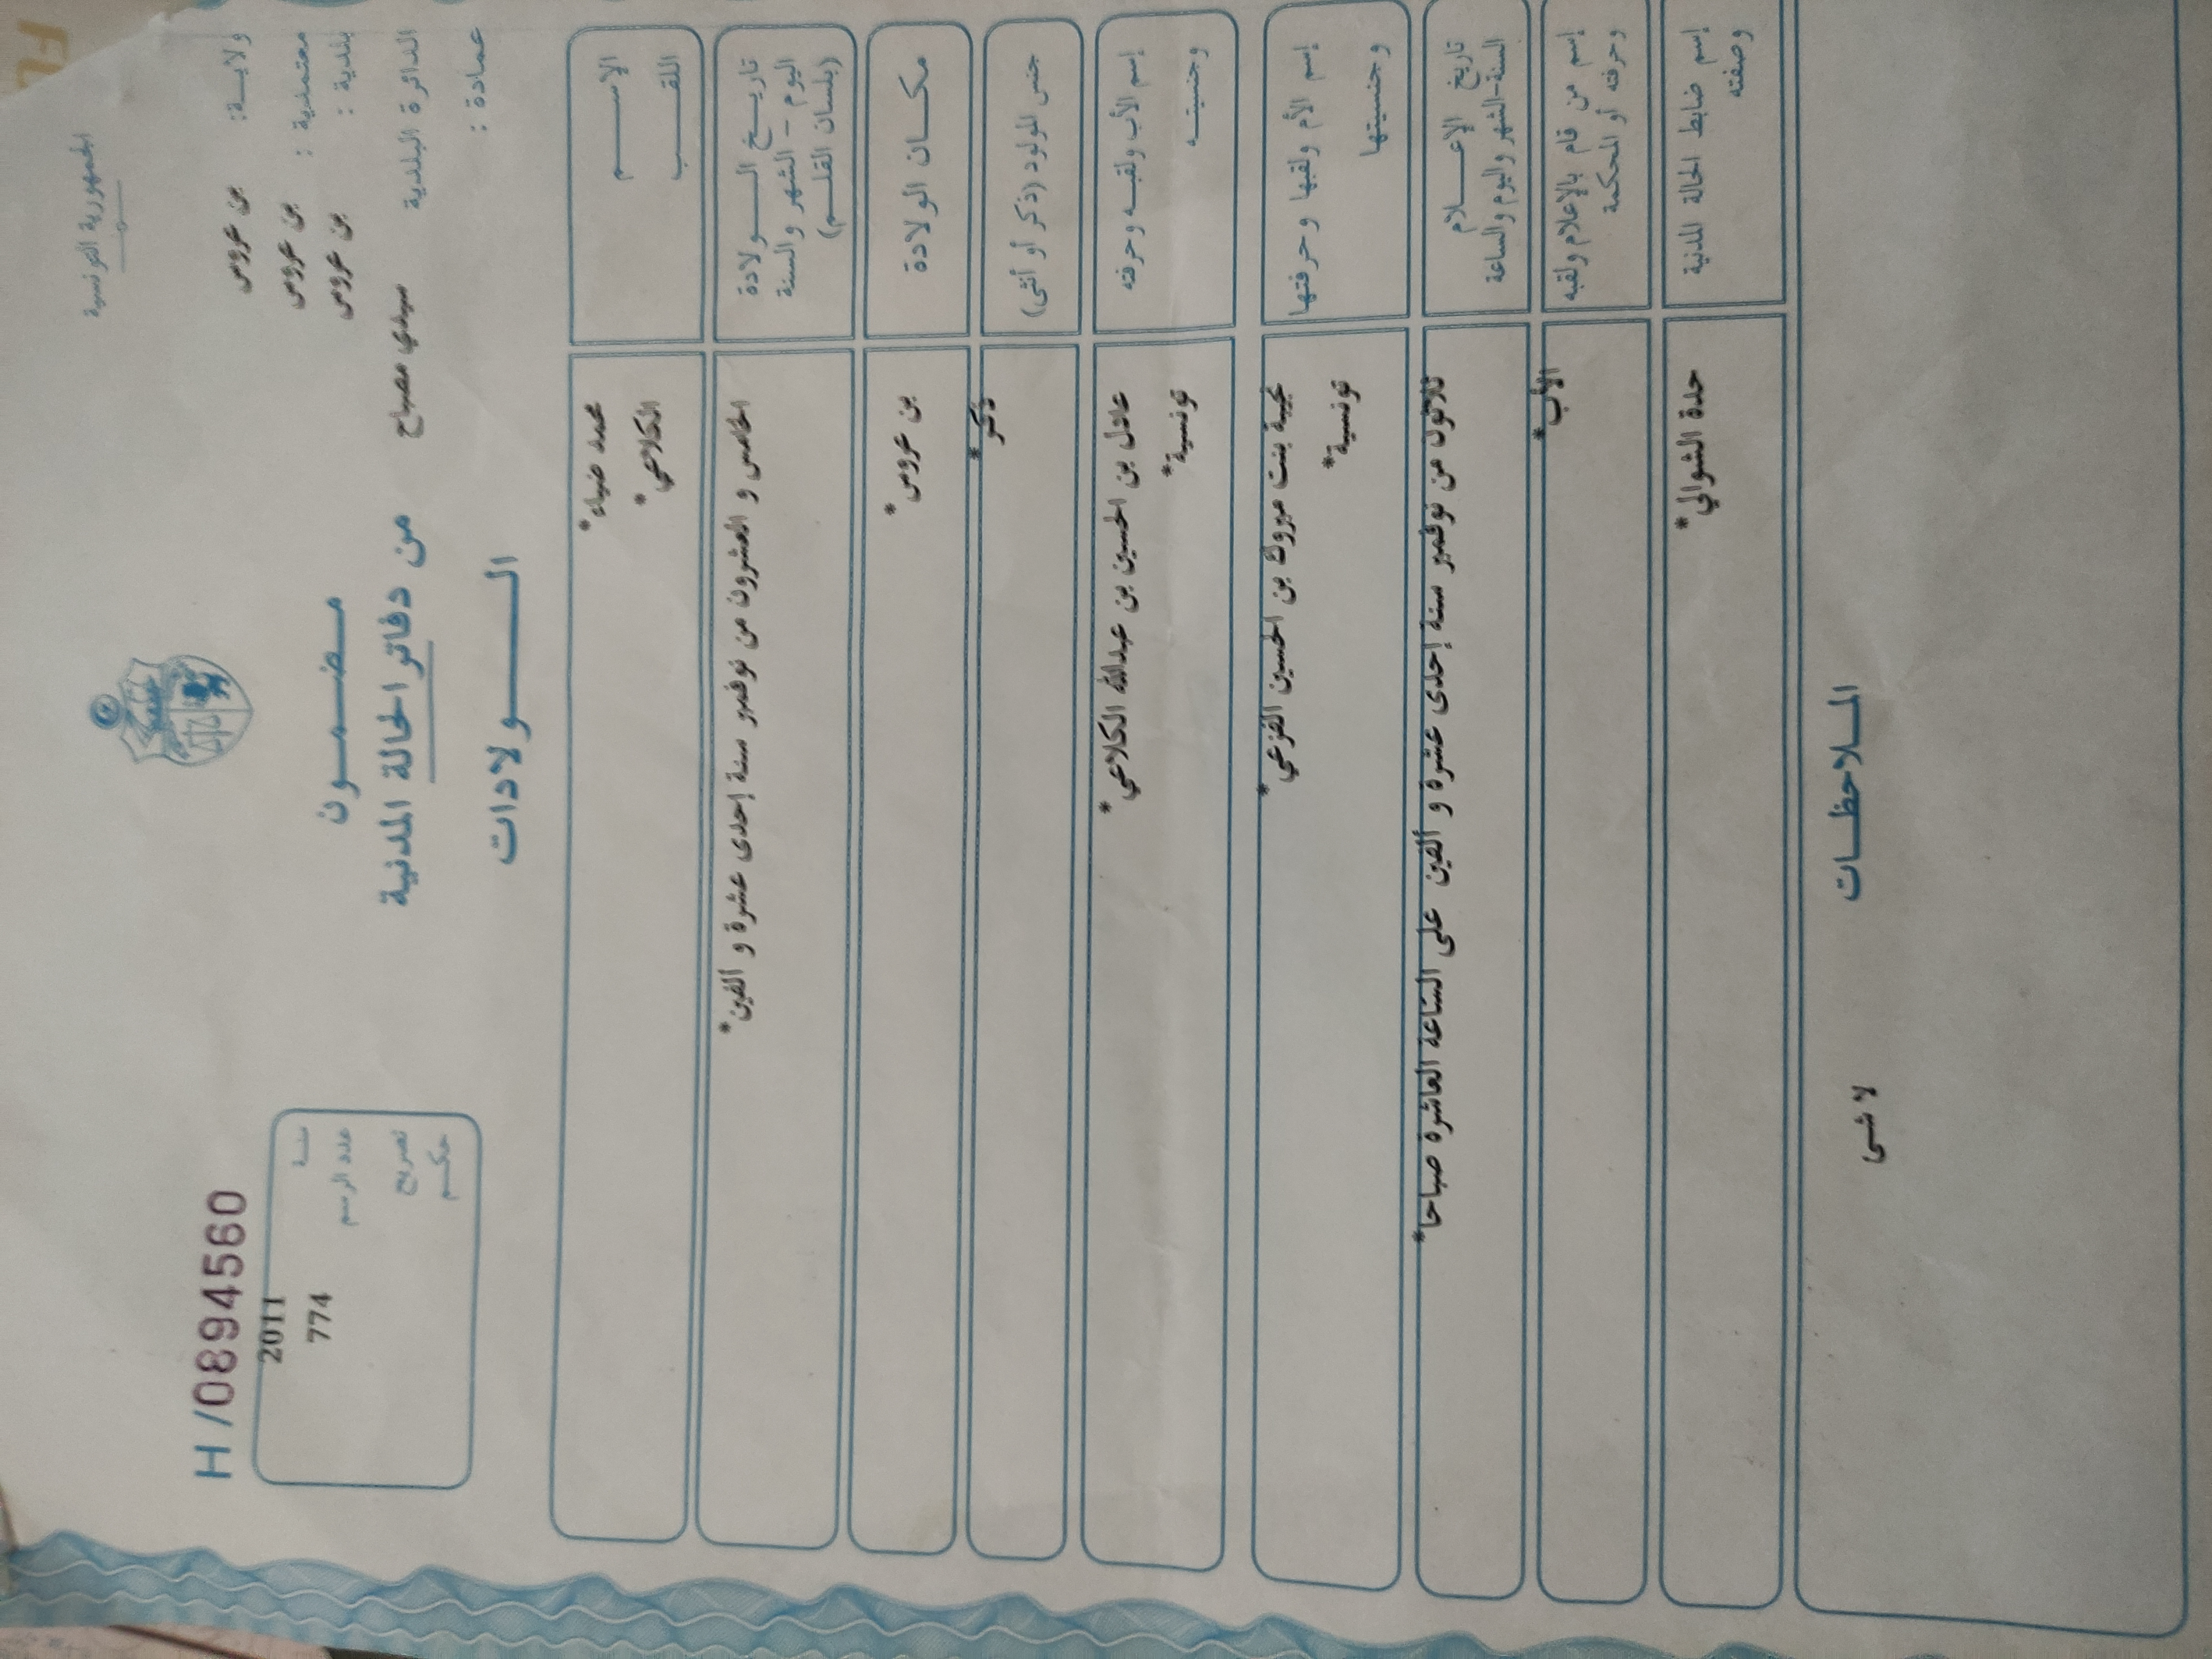 الجمهورية التونسية
ولايـــة: بن عروس
معتمدية : بن عروس
بلدية : بن عروس
الدائرة البلدية سيدي مصباح
عمادة :
مـــضـــمـــون
من دفاتر الحالة المدنية
الـــــولادات
H /08945
سنـــة 2011
عدد الرسم 774
تصريح
حكـــم
الإســـــم محمد ضياء*
اللقـــــب الكلاعي*
تاريـــخ الـــولادة
اليوم - الشهر والسنة
(بلسان القلـــم)
الخامس و العشرون من نوفمبر سنة إحدى عشرة و ألفين*
مكـــان الولادة بن عروس*
جنس المولود (ذكر أو أنثى) ذكر*
إسم الأب ولقبـــه وحرفته عادل بن الحسين بن عبدالله الكلاعي*
وجنسيتـــه تونسية*
إسم الأم ولقبها وحرفتها نجيبة بنت مبروك بن الحسين القزعي*
وجنسيتها تونسية*
تاريخ الإعـــلام
السنة-الشهر واليوم والساعة
ثلاثون من نوفمبر سنة إحدى عشرة و ألفين على الساعة العاشرة صباحا*
إسم من قام بالإعلام ولقبه الأب*
وحرفته أو المحكمة
إسم ضابط الحالة المدنية حدة الشوالي*
وصفته
المـــلاحظـــات
لا شى